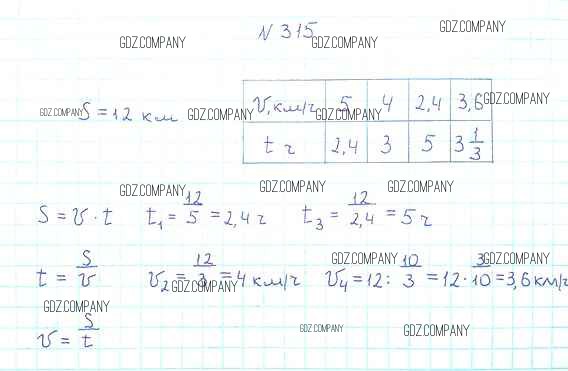 N 315
GDZ.COMPANY GDZ.COMPANY GDZ.COMPANY
v, км/ч 5 4 2,4 3,6 GDZ.COMPANY
GDZ.COMPANY S = 12 км GDZ.COMPANY GDZ.COMPANY
t ч 2,4 3 5 3 1/3
GDZ.COMPANY GDZ.COMPANY GDZ.COMPANY
S = v · t t₁ = 12/5 = 2,4 ч t₃ = 12/2,4 = 5 ч
GDZ.COMPANY GDZ.COMPANY
t = S/v v₂ = 12/3 = 4 км/ч v₄ = 12 : 10/3 = 12 · 3/10 = 3,6 км/ч
GDZ.COMPANY
GDZ.COMPANY GDZ.COMPANY GDZ.COMPANY
v = S/t